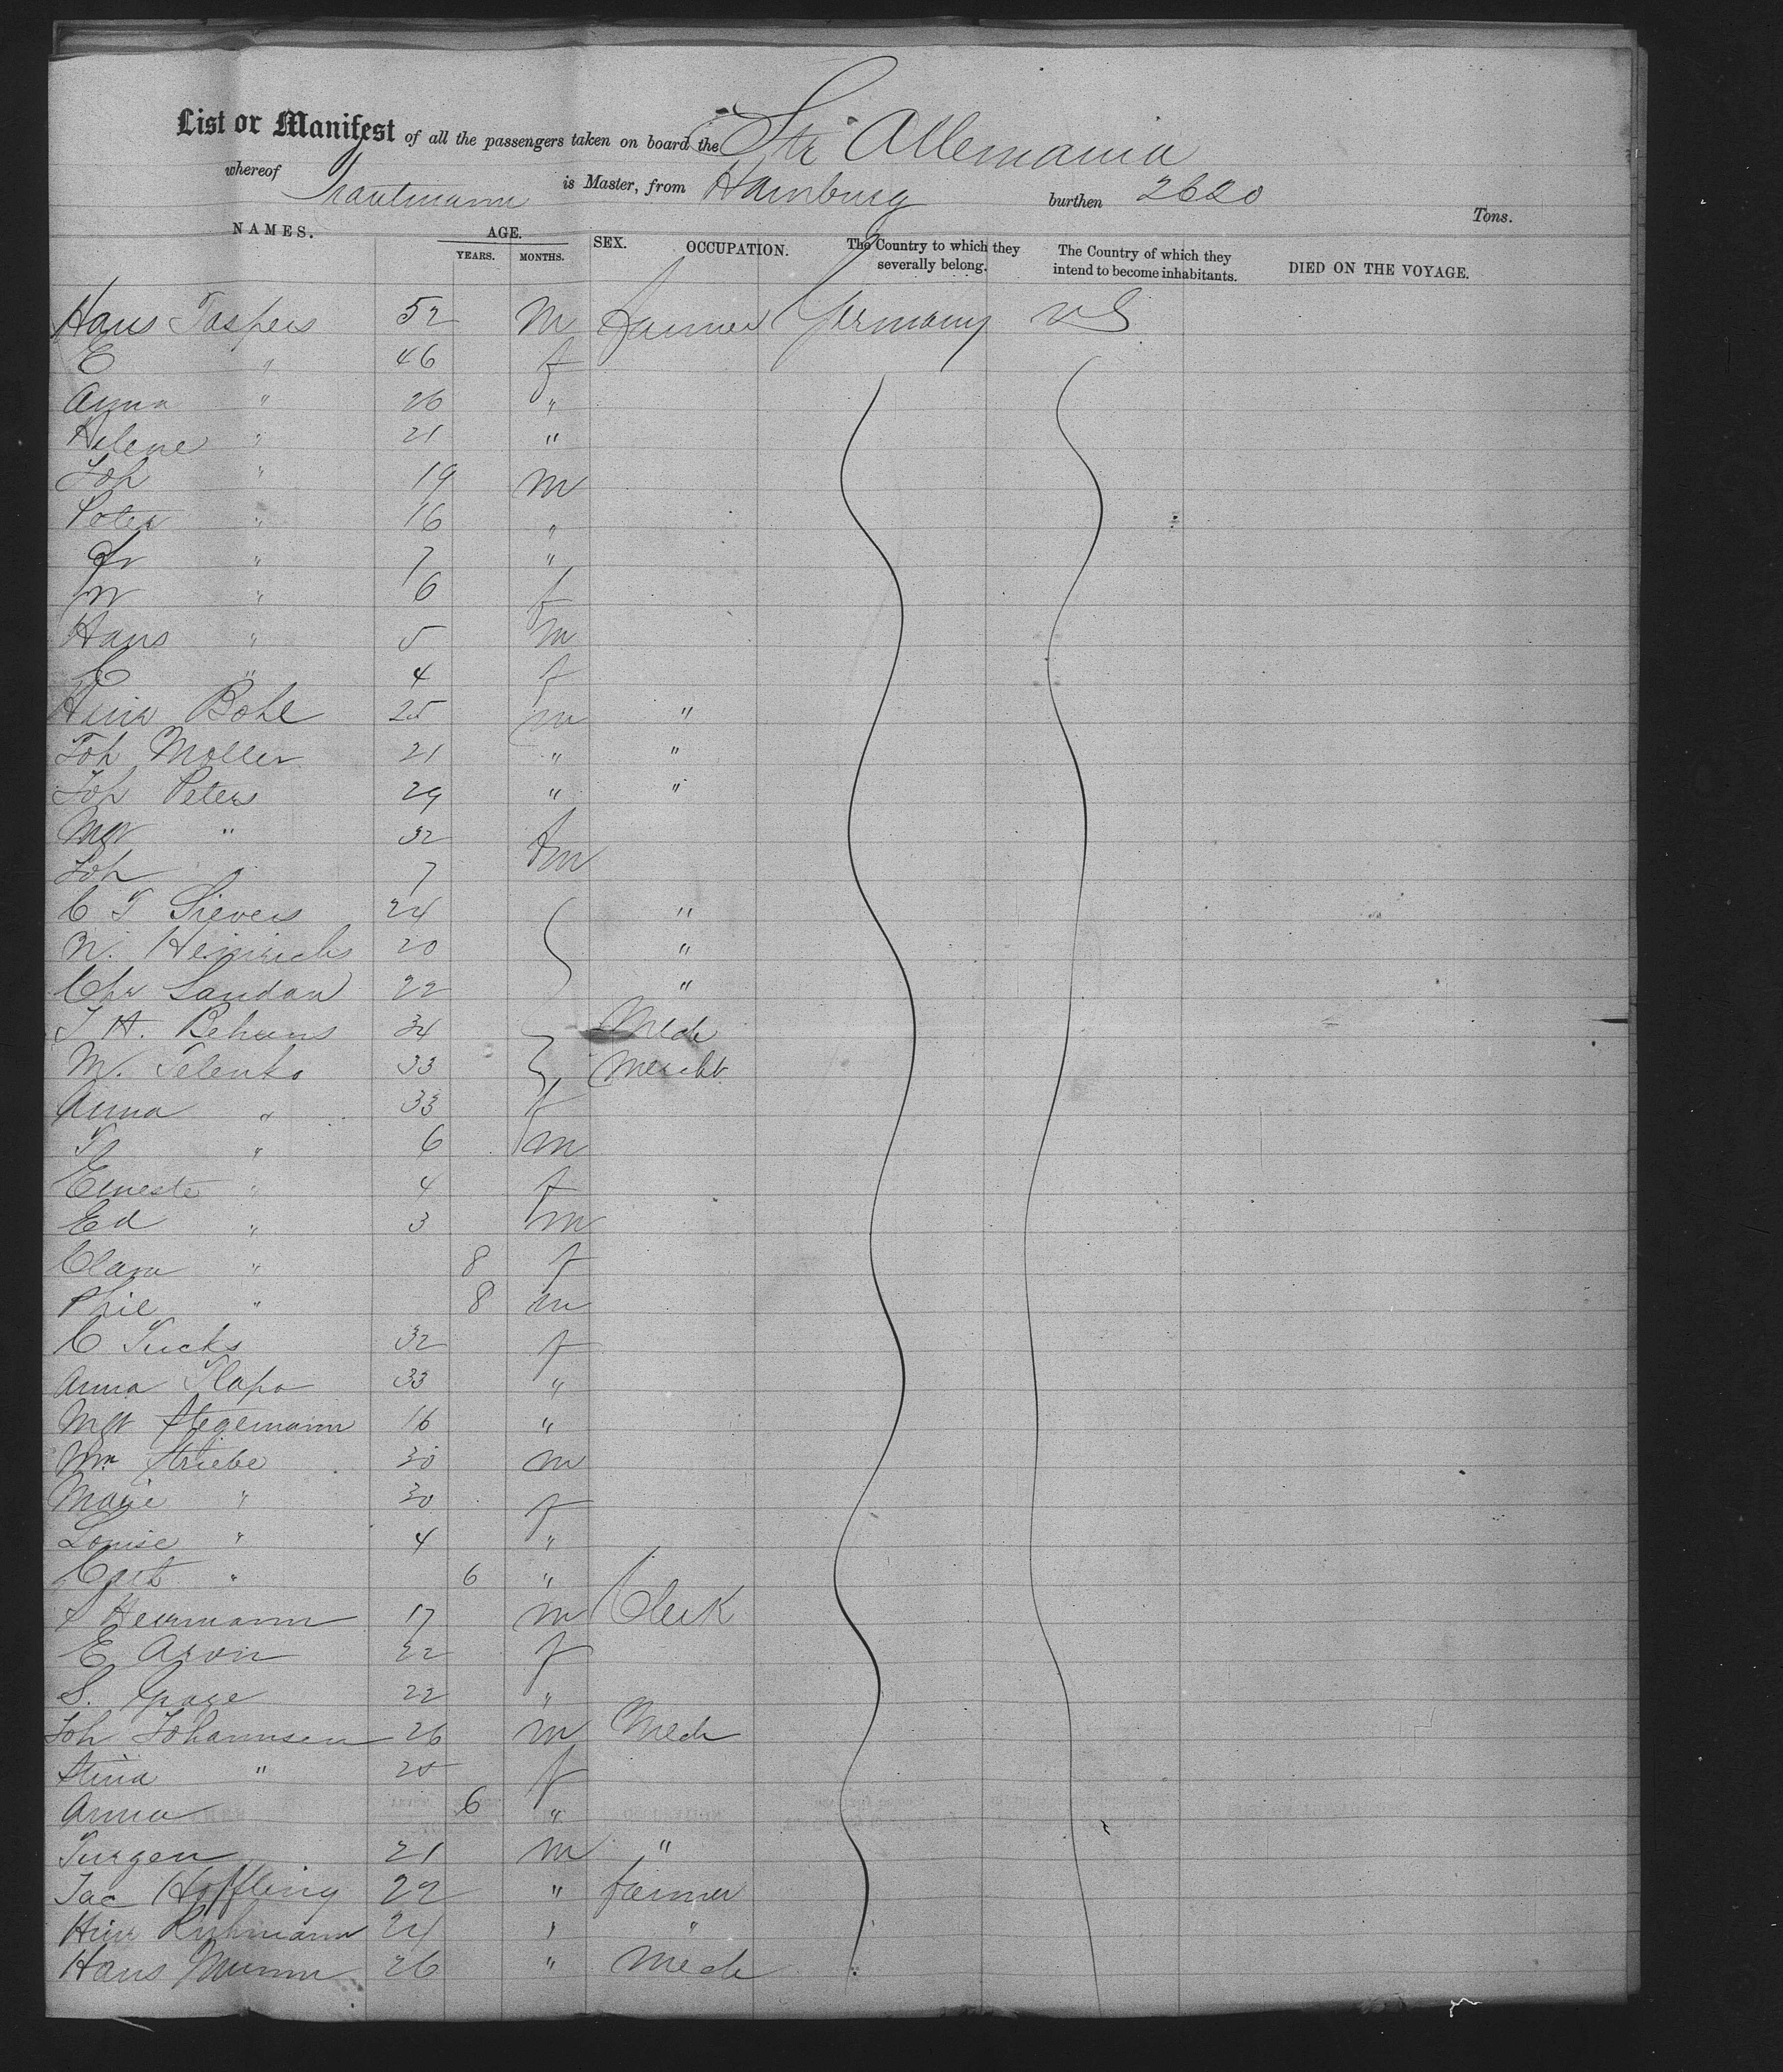 List or Manifest of all the passengers taken on board the Str Allemania
whereof Trautmann is Master, from Hamburg burthen 2620 Tons.
NAMES. AGE. SEX. OCCUPATION. The Country to which they severally belong. The Country of which they intend to become inhabitants. DIED ON THE VOYAGE.
YEARS. MONTHS.
Hans Jaspers 52 M Farmer Germany US
E " 46 f
Anna " 26 "
Helene " 21 "
Joh " 19 m
Peter " 16 "
Fr " 7 "
M " 6 f
Hans " 5 m
C " 4 f
Hinr Bohl 25 m "
Joh Moller 21 " "
Joh Peters 29 " "
Mgt " 32 f
Joh 7 m
C J Sievers 24 "
N. Heinrichs 20 "
Chr Landau 22 "
J H. Behrens 34 Mech
M. 33 Mercht
Anna " 33 f
J " 6 m
Erneste " 4 f
Ed " 3 m
Clara " 8 f
Phil " 8 m
C 32 f
Anna 33 "
Mgt Stegemann 16 "
Wm Striebe 30 m
Marie " 30 f
Louise " 4 "
" 6 "
Herrmann 17 m Clerk
E Aron 22 f
S. 22 "
Joh Johannsen 26 m Mech
Stina " 25 f
Anna 6 "
Jurgen 21 m "
Jac Hoffling 22 " farmer
Hinr Ruhmann 24 " "
Hans Mumm 26 " Mech